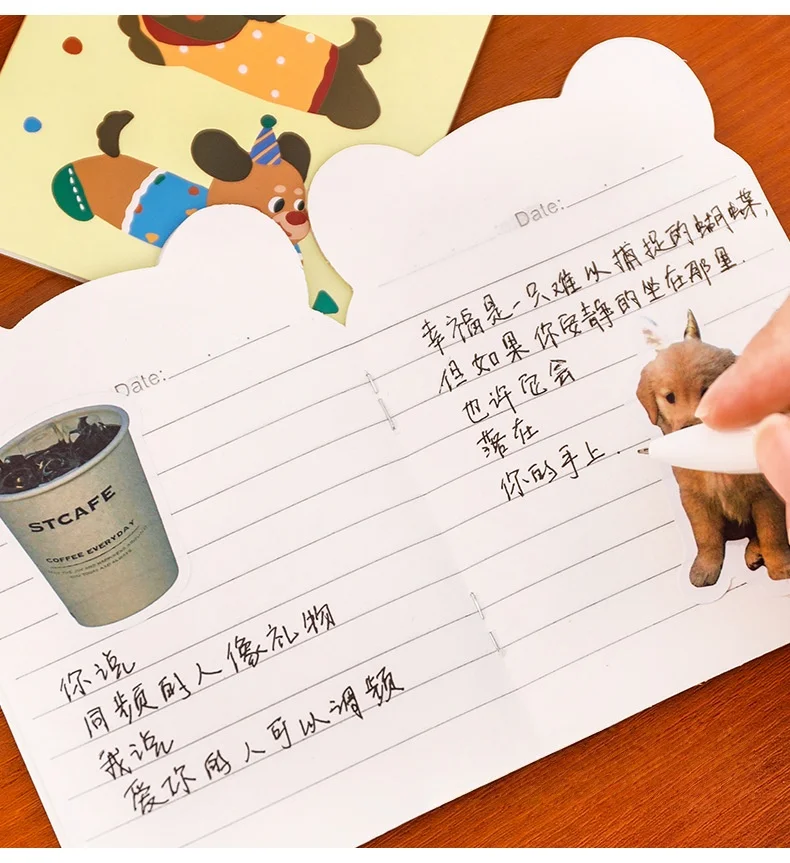 Date:
STCAFE
COFFEE EVERYDAY
你说
同频的人像礼物
我说
爱你的人可以调频
Date:
幸福是一只难以捕捉的蝴蝶,
但如果你安静的坐在那里.
也许它会
落在
你的手上.